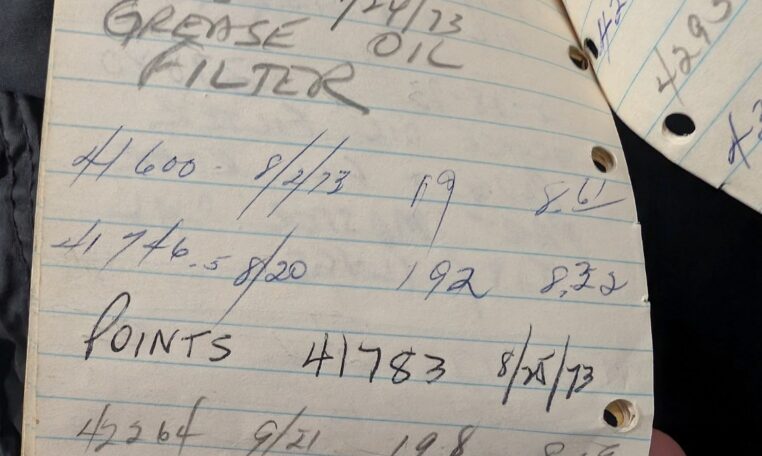 /24/73
GREASE OIL
FILTER
41600 - 8/2/73 19 8.61
41746.5 8/20 192 8.32
POINTS 41783 8/25/73
42264 9/21 19.8
4293